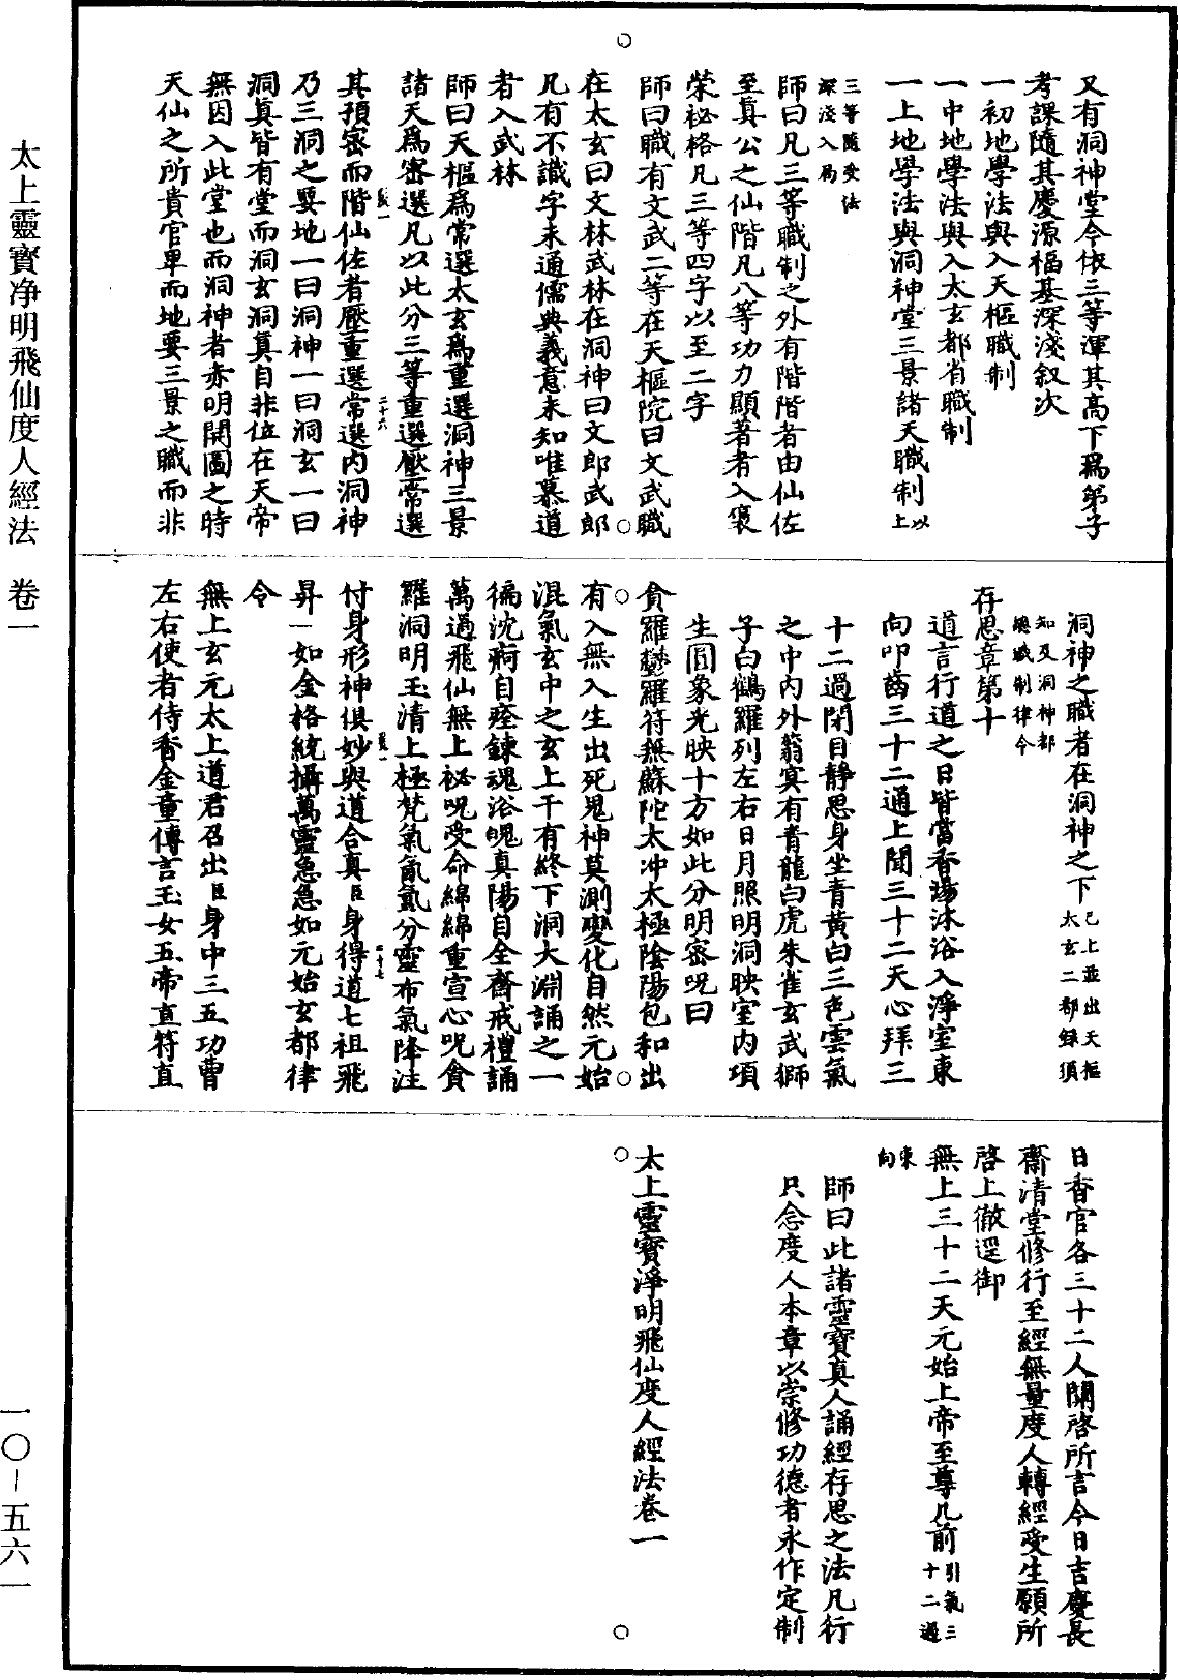 又有洞神堂今依三等運其高下爲弟子
考課隨其慶源福基深淺叙次
一初地學法與入天樞職制
一中地學法與入太玄都省職制
一上地學法與洞神堂三景諸天職制以上
三等隨受法
深淺入局
師曰凡三等職制之外有階階者由仙佐
至真公之仙階凡八等功力顯著者入褒
榮祕格凡三等四字以至二字
師曰職有文武二等在天樞院曰文武職
在太玄曰文林武林在洞神曰文郎武郎
凡有不識字未通儒典義意未知唯慕道
者入武林
師曰天樞爲常選太玄爲重選洞神三景
諸天爲密選凡以此分三等重選壓常選
其預密而階仙佐者壓重選常選内洞神
二十六
乃三洞之要地一曰洞神一曰洞玄一曰
洞真皆有堂而洞玄洞真自非位在天帝
無因入此堂也而洞神者赤明開圖之時
天仙之所貴官卑而地要三景之職而非
洞神之職者在洞神之下已上並出天樞
太玄二都錄須
知及洞神都
總職制律令
存思章第十
道言行道之日皆當香湯沐浴入淨室東
向叩齒三十二通上聞三十二天心拜三
十二過閉目靜思身坐青黄白三色雲氣
之中内外蓊冥有青龍白虎朱雀玄武獅
子白鶴羅列左右日月照明洞映室内項
生圓象光映十方如此分明密呪曰
貪羅鬱羅符無蘇陀太冲太極陰陽包和出
有入無入生出死鬼神莫測變化自然元始
混氣玄中之玄上干有終下洞大淵誦之一
徧沈痾自痊鍊魂浴魄真陽自全齋戒禮誦
萬過飛仙無上祕呪受命綿綿重宣心呪貪
羅洞明玉清上極梵氣氤氳分靈布氣降注
付身形神俱妙與道合真臣身得道七祖飛
二十七
昇一如金格統攝萬靈急急如元始玄都律
令
無上玄元太上道君召出臣身中三五功曹
左右使者侍香金童傳言玉女五帝直符直
日香官各三十二人關啓所言今日吉慶長
齋清堂修行至經無量度人轉經受生願所
啓上徹逕御
無上三十二天元始上帝至尊几前引氣三
十二過
東
向
師曰此諸靈寶真人誦經存思之法凡行
只念度人本章以崇修功德者永作定制
太上靈寶淨明飛仙度人經法卷一
太上靈寶净明飛仙度人經法　卷一
一〇－五六一